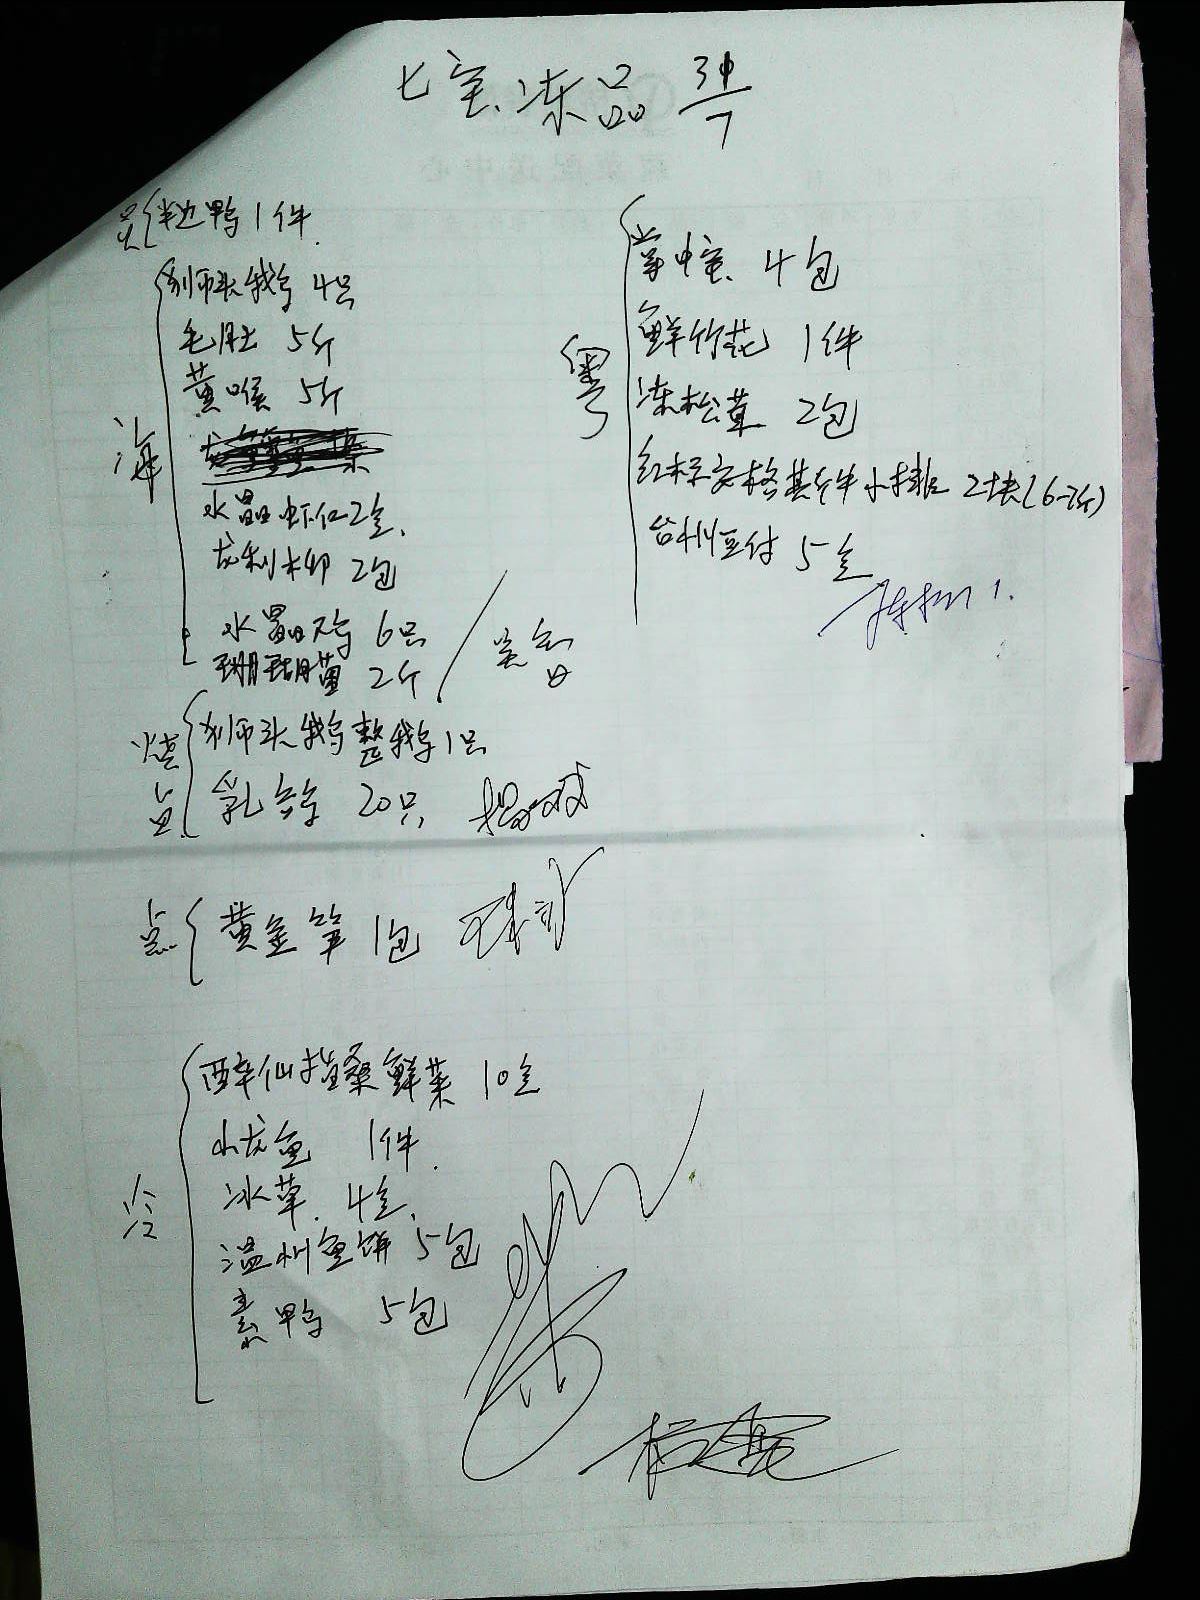 七宝冻品
半边鸭1件
海
狮头鹅 4只
毛肚 5斤
黄喉 5斤
水晶虾仁2盒
龙利柳 2包
水晶鸡 6只
珊瑚菌 2斤
烧
狮头鹅整鹅1只
乳鸽 20只
点
黄金笋 1包
冷
醉仙 鲜菜 10盒
小龙鱼 1件
冰草 4盒
温州鱼饼 5包
素鸭 5包
粤
掌中宝 4包
鲜竹花 1件
冻松茸 2包
小排 2块(6-7斤)
台州豆付 5盒